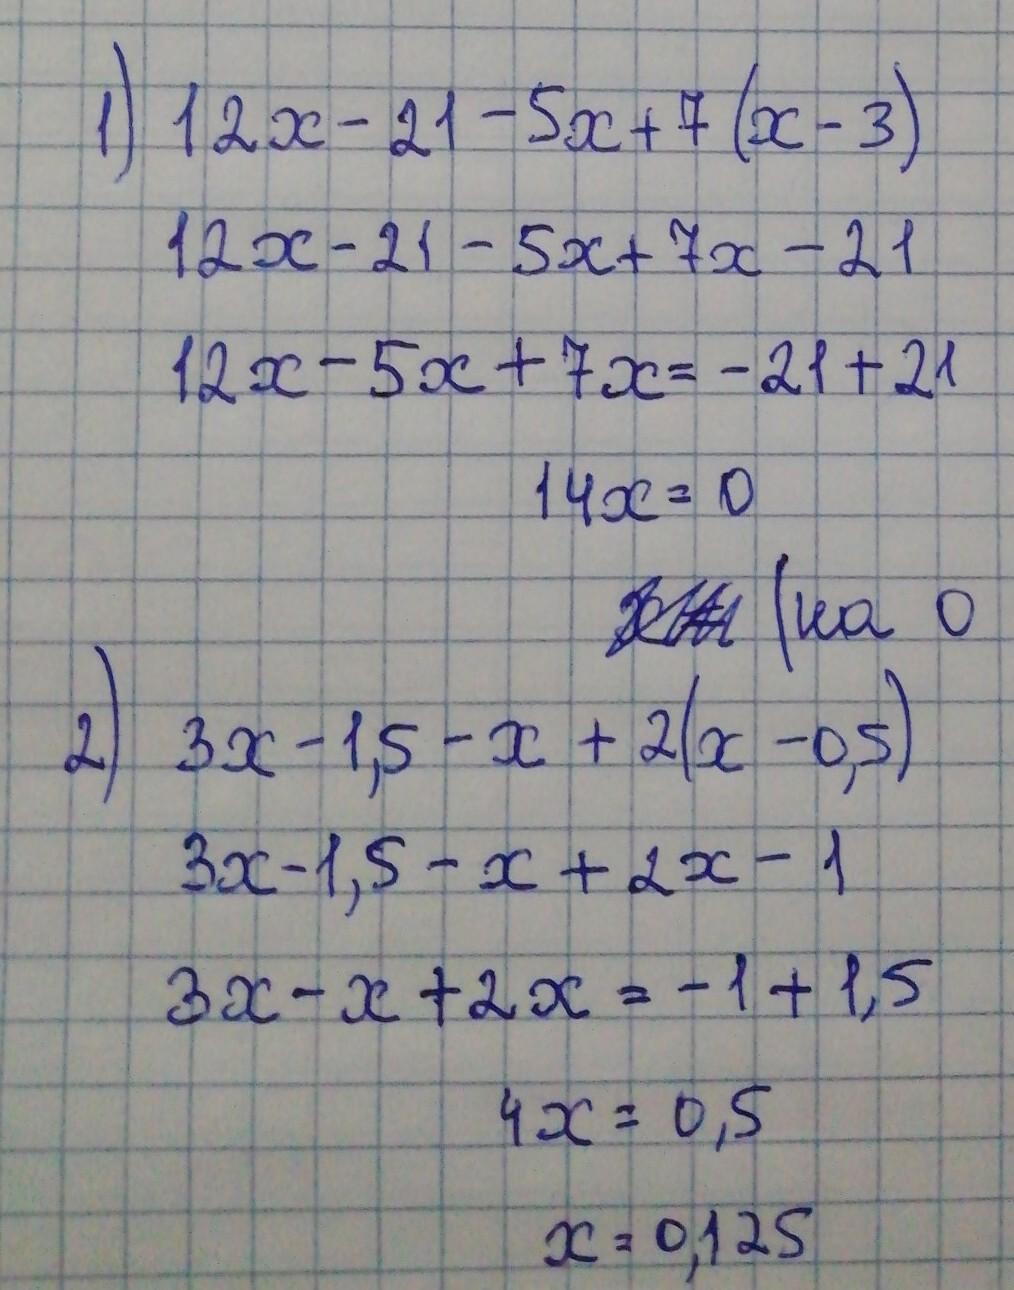 1) 12x - 21 - 5x + 7(x - 3)
12x - 21 - 5x + 7x - 21
12x - 5x + 7x = -21 + 21
14x = 0
(на 0
2) 3x - 1,5 - x + 2(x - 0,5)
3x - 1,5 - x + 2x - 1
3x - x + 2x = -1 + 1,5
4x = 0,5
x = 0,125